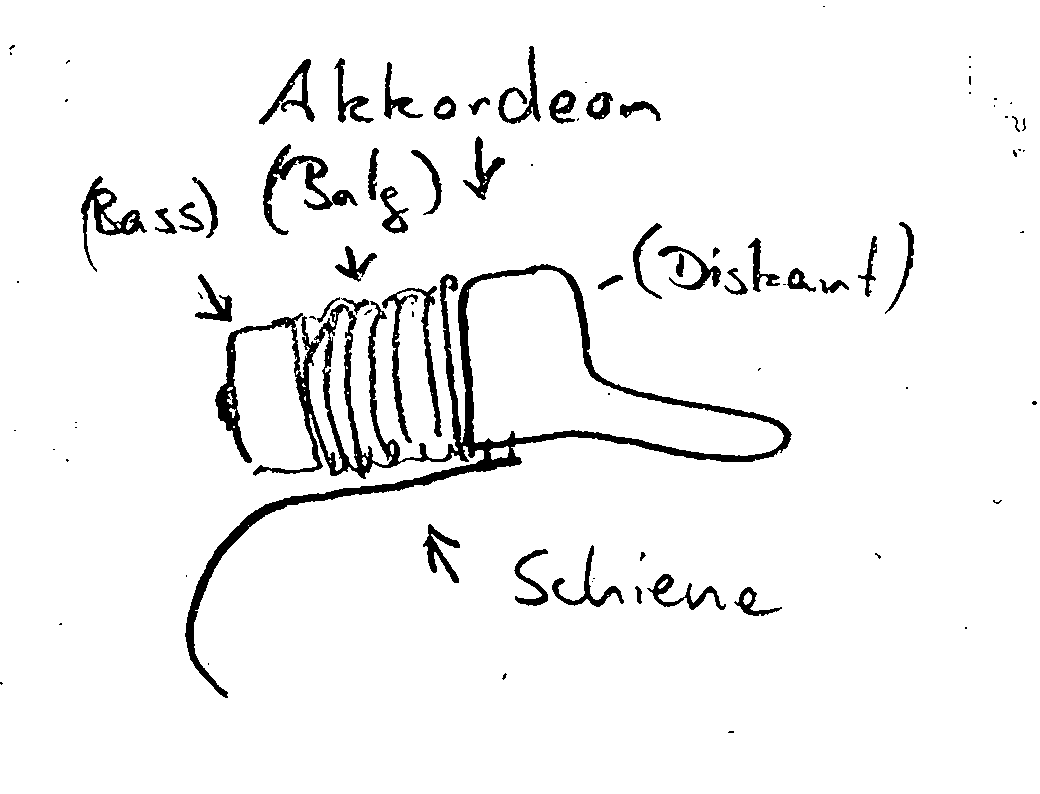 Akkordeon
(Bass) (Balg)
(Diskant)
Schiene